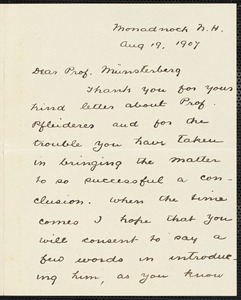 Monadnock N.H.
Aug 19, 1907
Dear Prof. Münsterberg
Thank you for your
kind letter about Prof.
Pfleiderer and for the
trouble you have taken
in bringing the matter
to so successful a con-
clusion. When the time
comes I hope that you
will consent to say a
few words in introduc-
ing him, as you know